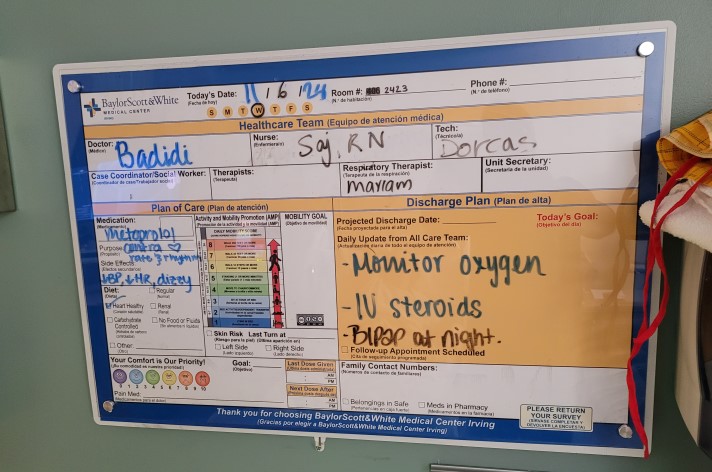 BaylorScott&White
MEDICAL CENTER
IRVING
Today's Date: 11 / 6 / 24 Room #: 2423 Phone #:
(Fecha de hoy) (N.° de habitación) (N.° de teléfono)
S M T W T F S
Healthcare Team (Equipo de atención médica)
Doctor: Badidi Nurse: Saj, RN Tech: Dorcas
(Médico) (Enfermera/o) (Técnico/a)
Case Coordinator/Social Worker: Therapists: Respiratory Therapist: Mariam Unit Secretary:
(Coordinador de caso/Trabajador social) (Terapeuta) (Terapeuta de la respiración) (Secretaria de la unidad)
Plan of Care (Plan de atención)
Medication: Metoprolol
(Medicamento)
Purpose: control ♡ rate & rhythm
(Propósito)
Side Effects: ↓BP, ↓HR, dizzy
(Efectos secundarios)
Diet:
(Dieta)
Heart Healthy
(Corazón saludable)
Regular
(Normal)
Carbohydrate Controlled
Renal
(Renal)
No Food or Fluids
Other:
(Otro)
Activity and Mobility Promotion (AMP)
MOBILITY GOAL
(Objetivo de movilidad)
8
7
6
5
4
3
2
1
Skin Risk Last Turn at
(Riesgo para la piel) (Última aparición en)
Left Side Right Side
(Lado izquierdo) (Lado derecho)
Your Comfort is Our Priority!
(¡Su comodidad es nuestra prioridad!)
Goal:
(Objetivo)
0 1 2 3 4 5 6 7 8 9 10
Pain Med:
Last Dose Given
AM
PM
Next Dose After
AM
PM
Discharge Plan (Plan de alta)
Projected Discharge Date:
(Fecha proyectada para el alta)
Today's Goal:
(Objetivo del día)
Daily Update from All Care Team:
(Actualización diaria de todo el equipo de atención)
-Monitor oxygen
-IV steroids
-BIPAP at night.
Follow-up Appointment Scheduled
(Cita de seguimiento programada)
Family Contact Numbers:
(Números de contacto de familiares)
Belongings in Safe Meds in Pharmacy
(Pertenencias en caja fuerte) (Medicamentos en la farmacia)
PLEASE RETURN
YOUR SURVEY
(SÍRVASE COMPLETAR Y
DEVOLVER LA ENCUESTA)
Thank you for choosing BaylorScott&White Medical Center Irving
(Gracias por elegir a BaylorScott&White Medical Center Irving)